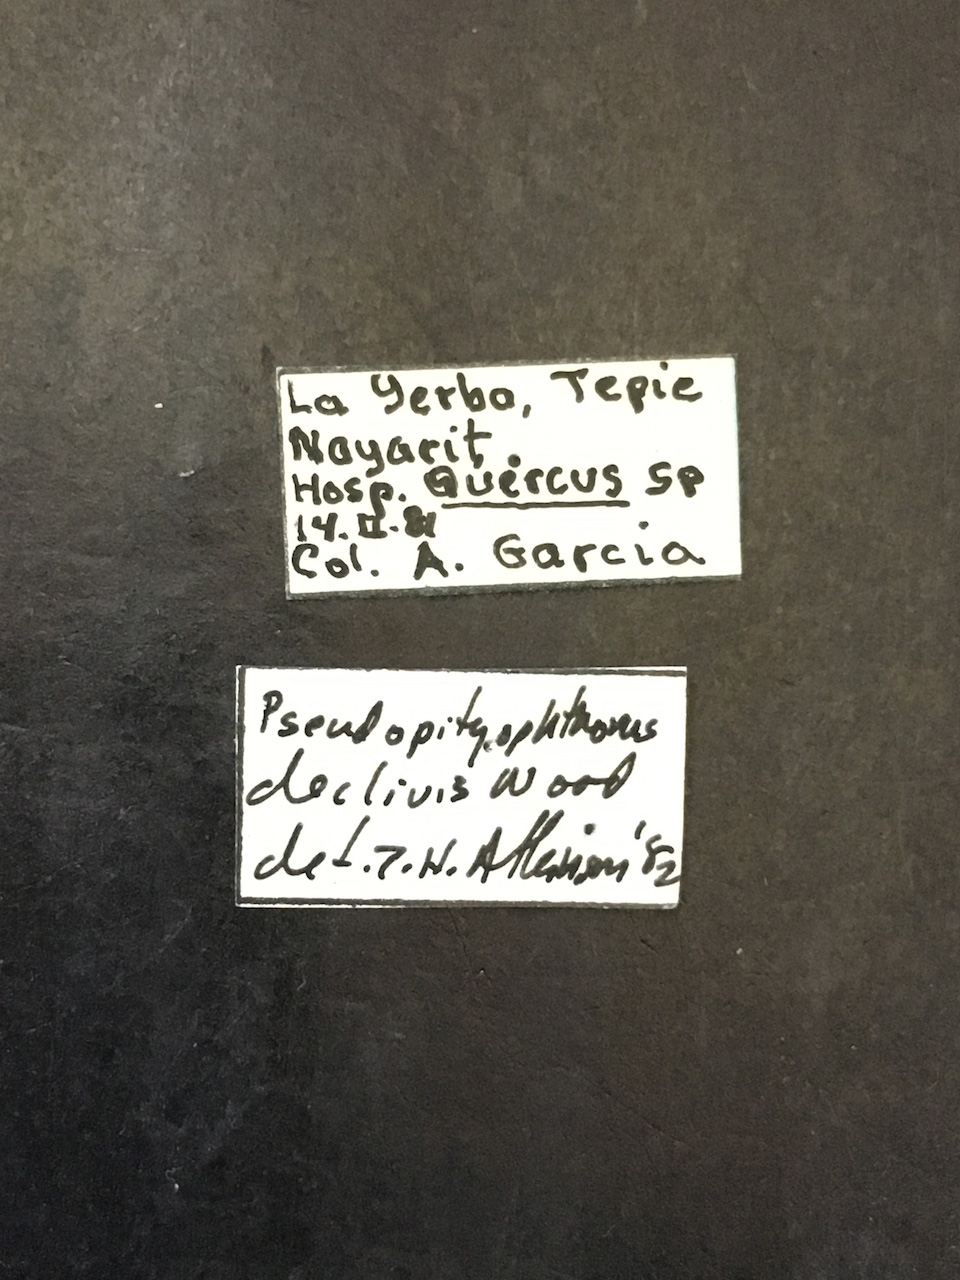 La Yerba, Tepic
Nayarit.
Hosp. Quercus sp
14.II.81
Col. A. Garcia
Pseudopityophthorus
declivis Wood
det. T.H. Atkinson '82